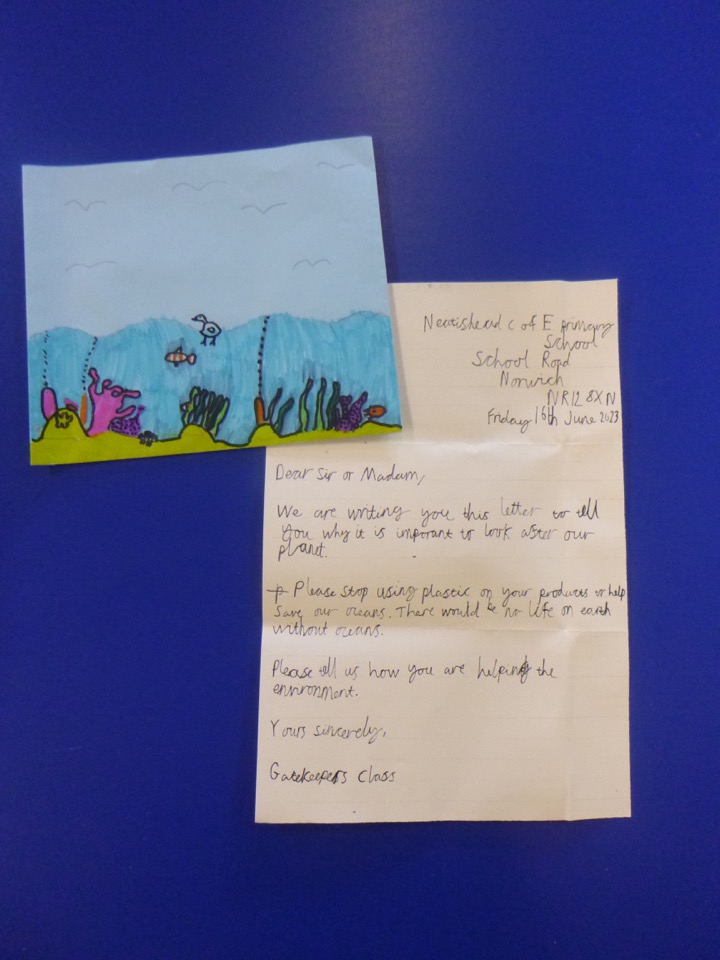 Neatishead C of E primary
School
School Road
Norwich
NR12 8XN
Friday 16th June 2023
Dear Sir or Madam,
We are writing you this letter to tell
you why it is imporant to look after our
planet.
Please stop using plastic on your products to help
save our oceans. There would be no life on earth
without oceans.
Please tell us how you are helping the
environment.
Yours sincerely,
Gatekeepers Class